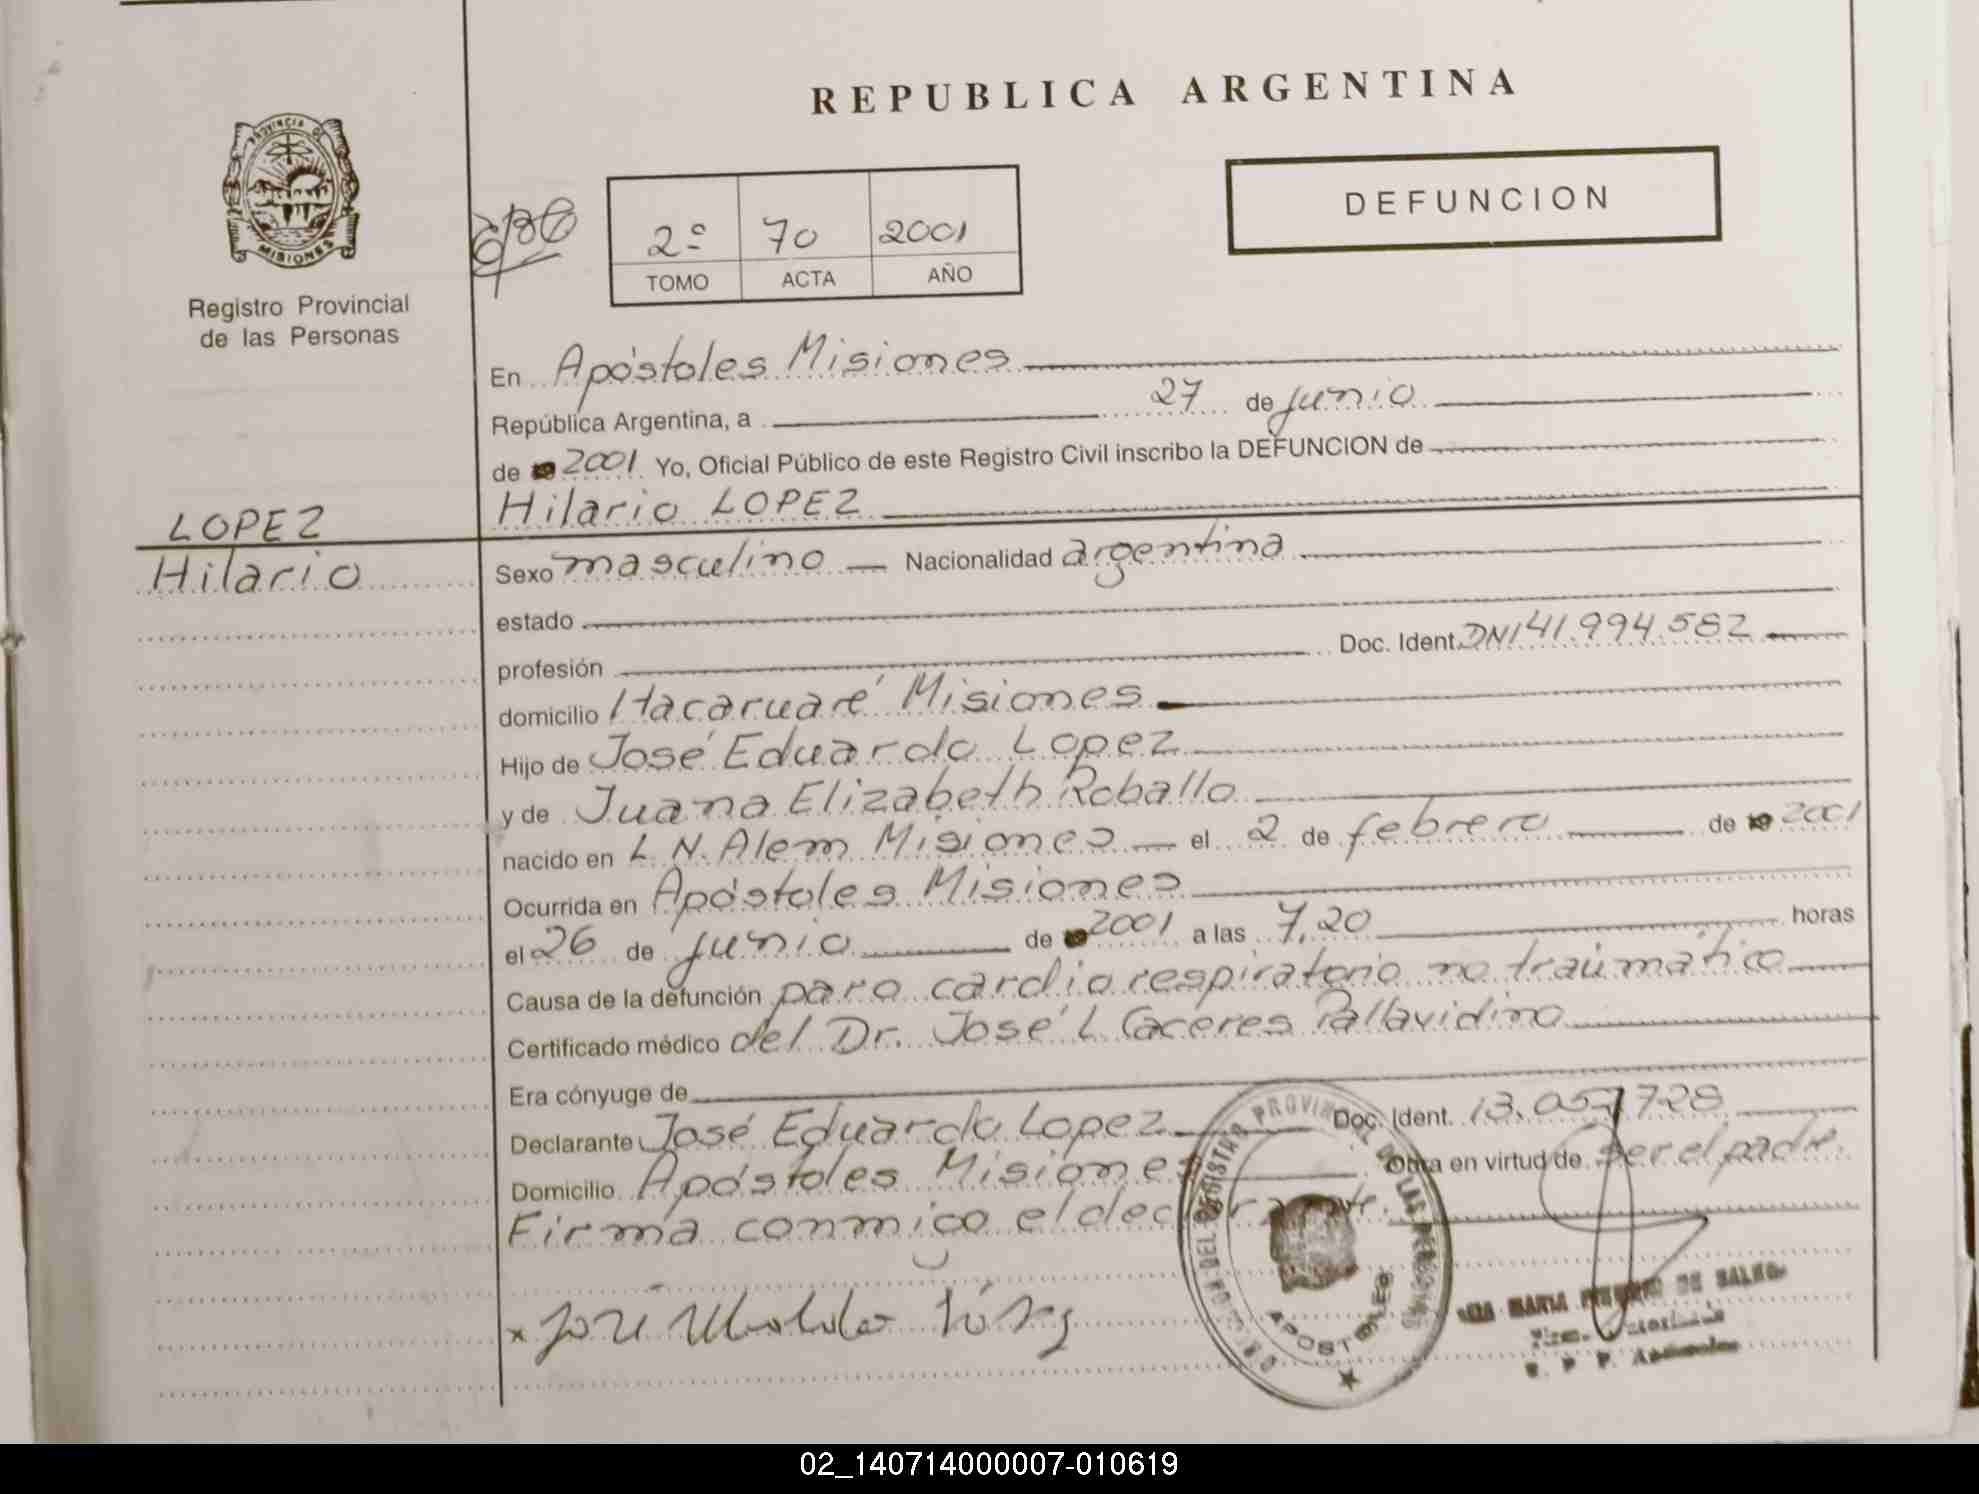 REPUBLICA ARGENTINA
PROVINCIA DE
MISIONES
Registro Provincial
de las Personas
DEFUNCION
2º 70 2001
TOMO ACTA AÑO
En Apóstoles Misiones
República Argentina, a 27 de junio
de 2001 Yo, Oficial Público de este Registro Civil inscribo la DEFUNCION de
Hilario LOPEZ
LOPEZ
Hilario
Sexo masculino Nacionalidad argentina
estado
profesión Doc. Ident. DNI 41.994.582
domicilio Itacaruaré Misiones
Hijo de José Eduardo Lopez
y de Juana Elizabeth Roballo
nacido en L. N. Alem Misiones el 2 de febrero de 2001
Ocurrida en Apóstoles Misiones
el 26 de junio de 2001 a las 7,20 horas
Causa de la defunción paro cardio respiratorio no traumático
Certificado médico del Dr. José L Caceres Pallavidino
Era cónyuge de
Declarante José Eduardo Lopez Doc. Ident. 13.057.728
Domicilio Apóstoles Misiones Obra en virtud de ser el padre.
Firma conmigo el declarante.
DEL REGISTRO PROVINCIAL DE LAS PERSONAS
APOSTOLES
MARIA DE
Apostoles
02_140714000007-010619